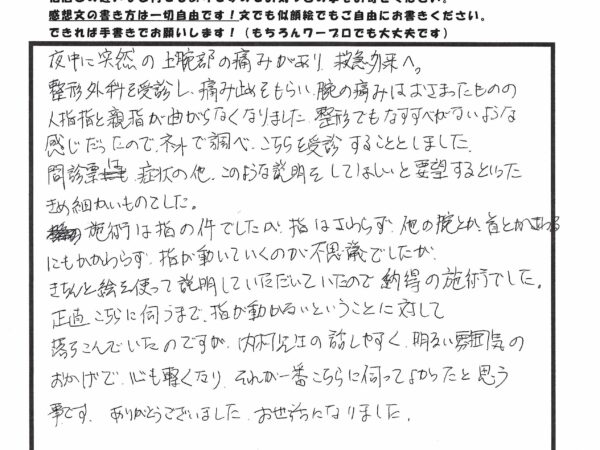 感想文の書き方は一切自由です！文でも似顔絵でもご自由にお書きください。
できれば手書きでお願いします！（もちろんワープロでも大丈夫です）
夜中に突然の上腕部の痛みがあり、救急外来へ。
整形外科を受診し、痛み止めをもらい、腕の痛みはおさまったものの
人指指と親指が曲がらなくなりました。整形でもなすすべがないような
感じだったので、ネットで調べ、こちらを受診することとしました。
問診票は、症状の他、このような説明をしてほしいと要望するといった
きめ細かいものでした。
施術は指の件でしたが、指はさわらず、他の腕とか、首とかさわる
にもかかわらず、指が動いていくのが不思議でしたが、
きちんと絵を使って説明していただいていたので納得の施術でした。
正直こちらに伺うまで、指が動かないということに対して
落ちこんでいたのですが、内村先生の話しやすく、明るい雰囲気の
おかげで、心も軽くなり、それが一番こちらに伺ってよかったと思う
事です。ありがとうございました。お世話になりました。